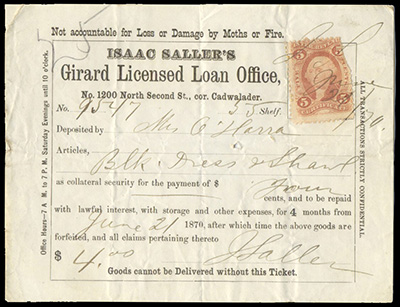 Not accountable for Loss or Damage by Moths or Fire.
ISAAC SALLER'S
Girard Licensed Loan Office,
No. 1200 North Second St., cor. Cadwalader.
No. 9547 55 Shelf.
Deposited by Mrs O'Harra
Articles, Blk. Dress & Shawl
as collateral security for the payment of $ Four
cents, and to be repaid
with lawful interest, with storage and other expenses, for 4 months from
June 21 1870, after which time the above goods are
forfeited, and all claims pertaining thereto
$ 4.00 I Saller
Goods cannot be Delivered without this Ticket.
Office Hours—7 A. M. to 7 P. M. Saturday Evenings until 10 o'clock.
ALL TRANSACTIONS STRICTLY CONFIDENTIAL.
5 5
CERTIFICATE